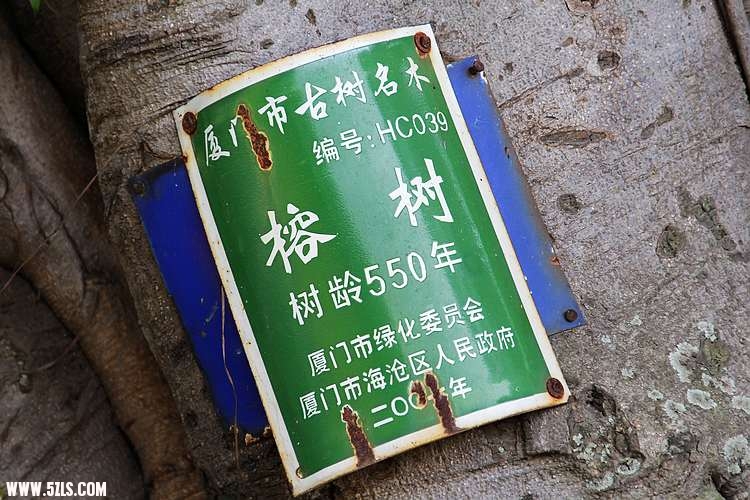 厦门市古树名木
编号:HC039
榕树
树龄550年
厦门市绿化委员会
厦门市海沧区人民政府
二〇〇 年
WWW.5ZLS.COM